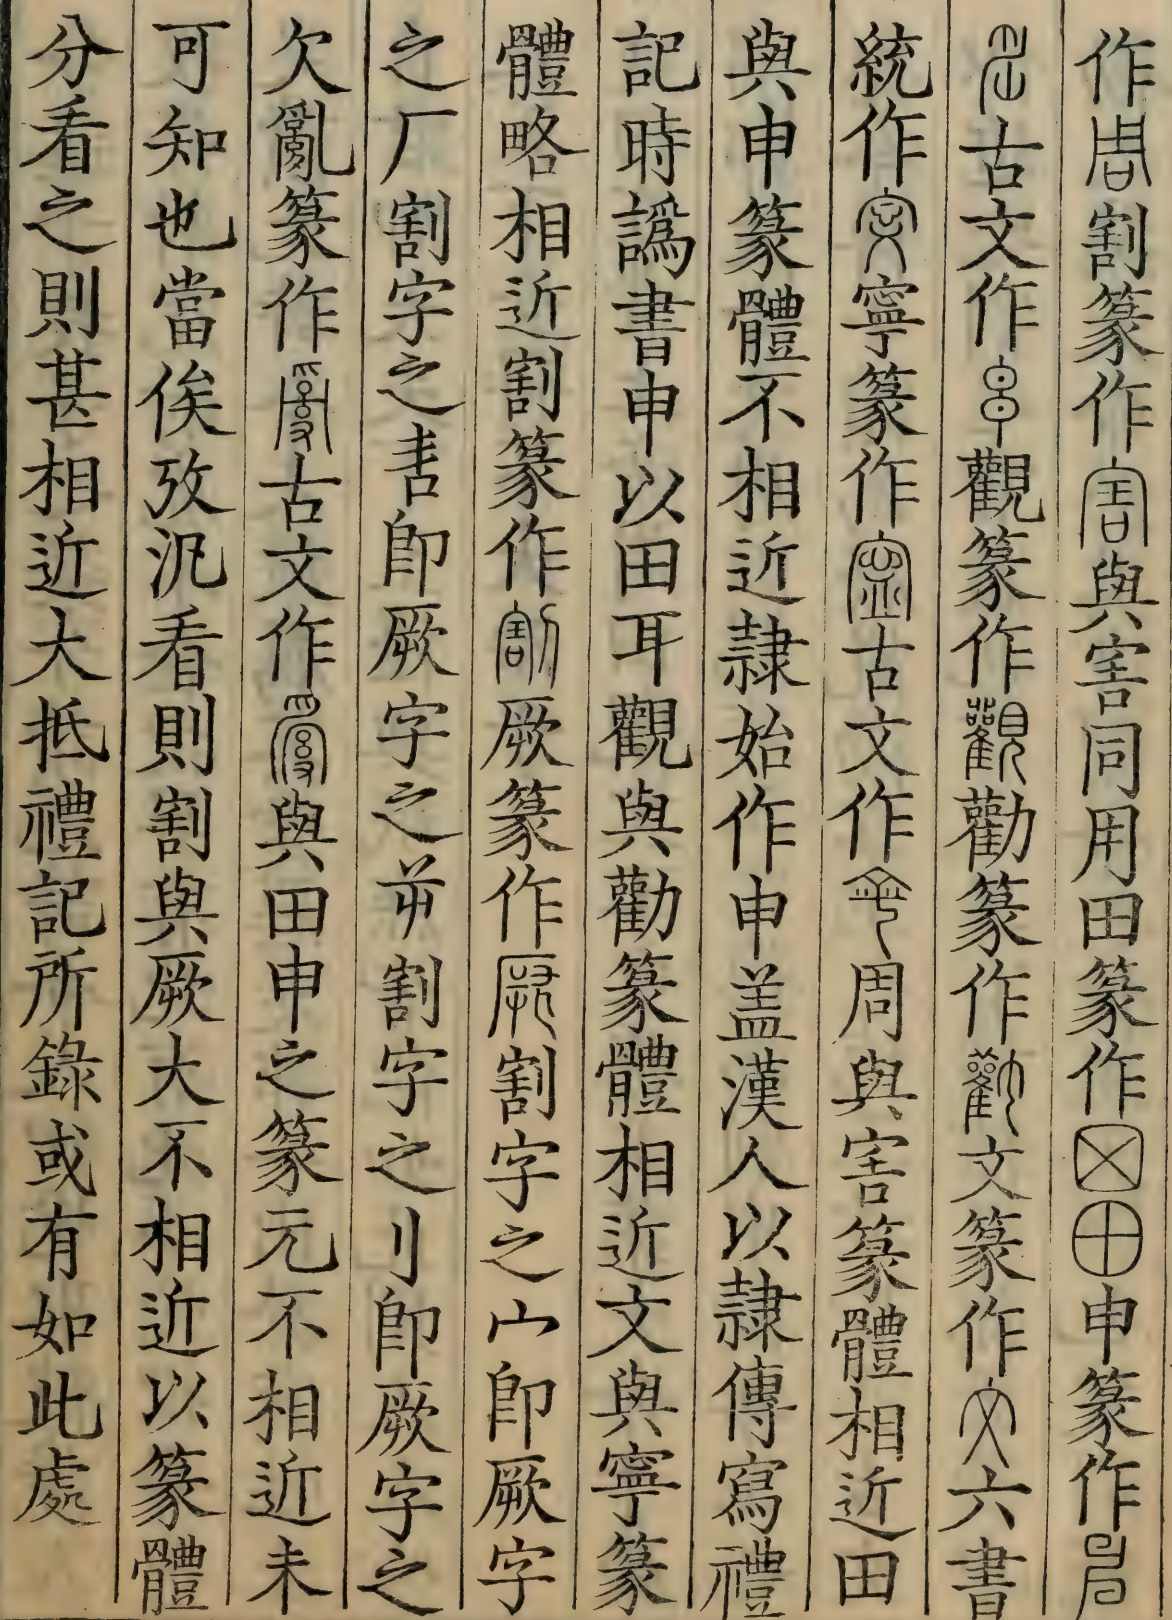 作周割篆作害與害同用田篆作申篆作
古文作觀篆作觀勸篆作勸文篆作文六書
統作寧篆作寧古文作周與害篆體相近田
與申篆體不相近隷始作申盖漢人以隷傳寫禮
記時譌書申以田耳觀與勸篆體相近文與寧篆
體略相近割篆作割厥篆作厥割字之宀卽厥字
之厂割字之卽厥字之割字之刂卽厥字之
欠亂篆作古文作與田申之篆元不相近未
可知也當俟攷汎看則割與厥大不相近以篆體
分看之則甚相近大抵禮記所錄或有如此處